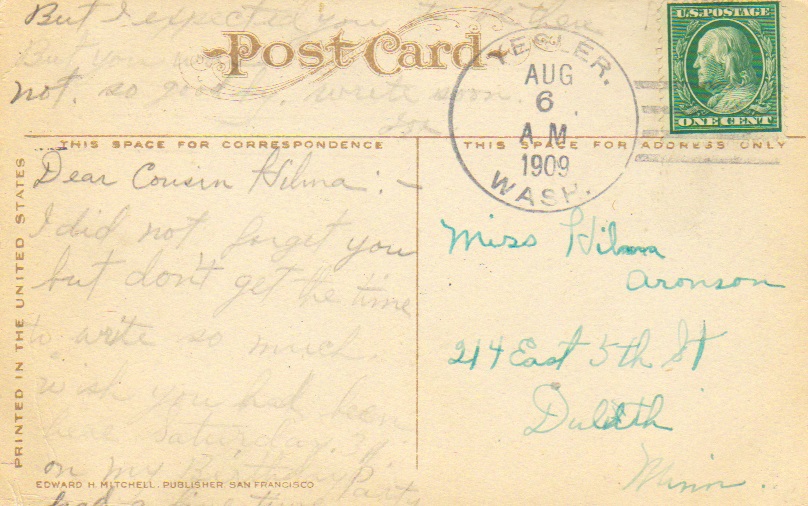 But I expected you to be then
But you
Post Card
not. so good by. write soon.
THIS SPACE FOR CORRESPONDENCE
Dear Cousin Hilma:-
I did not forget you
but don't get the time
to write so much
wish you had been
here Saturday. 31
on my Birthday Party
had a fine time
EDWARD H. MITCHELL, PUBLISHER, SAN FRANCISCO
PRINTED IN THE UNITED STATES
AUG
6
A.M.
1909
WASH.
U.S. POSTAGE
ONE CENT
THIS SPACE FOR ADDRESS ONLY
Miss Hilma
Aronson
214 East 5th St
Duluth
Minn.